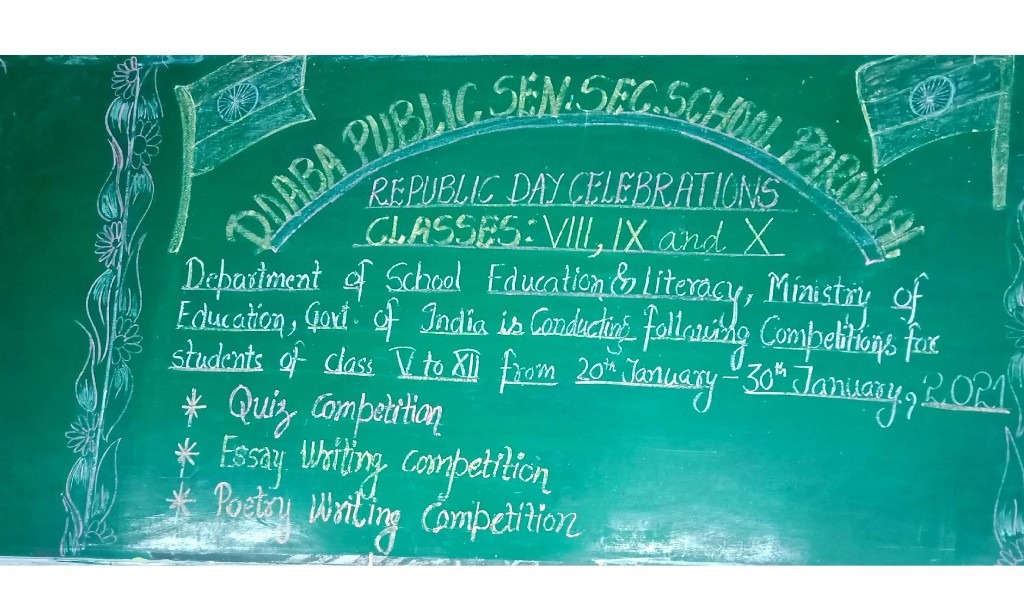 DOABA PUBLIC SEN. SEC. SCHOOL PAROWAL
REPUBLIC DAY CELEBRATIONS
CLASSES: VIII, IX and X
Department of School Education & literacy, Ministry of
Education, Govt. of India is Conducting following Competitions for
students of class V to XII from 20th January - 30th January, 2021
* Quiz Competition
* Essay Writing Competition
* Poetry Writing Competition